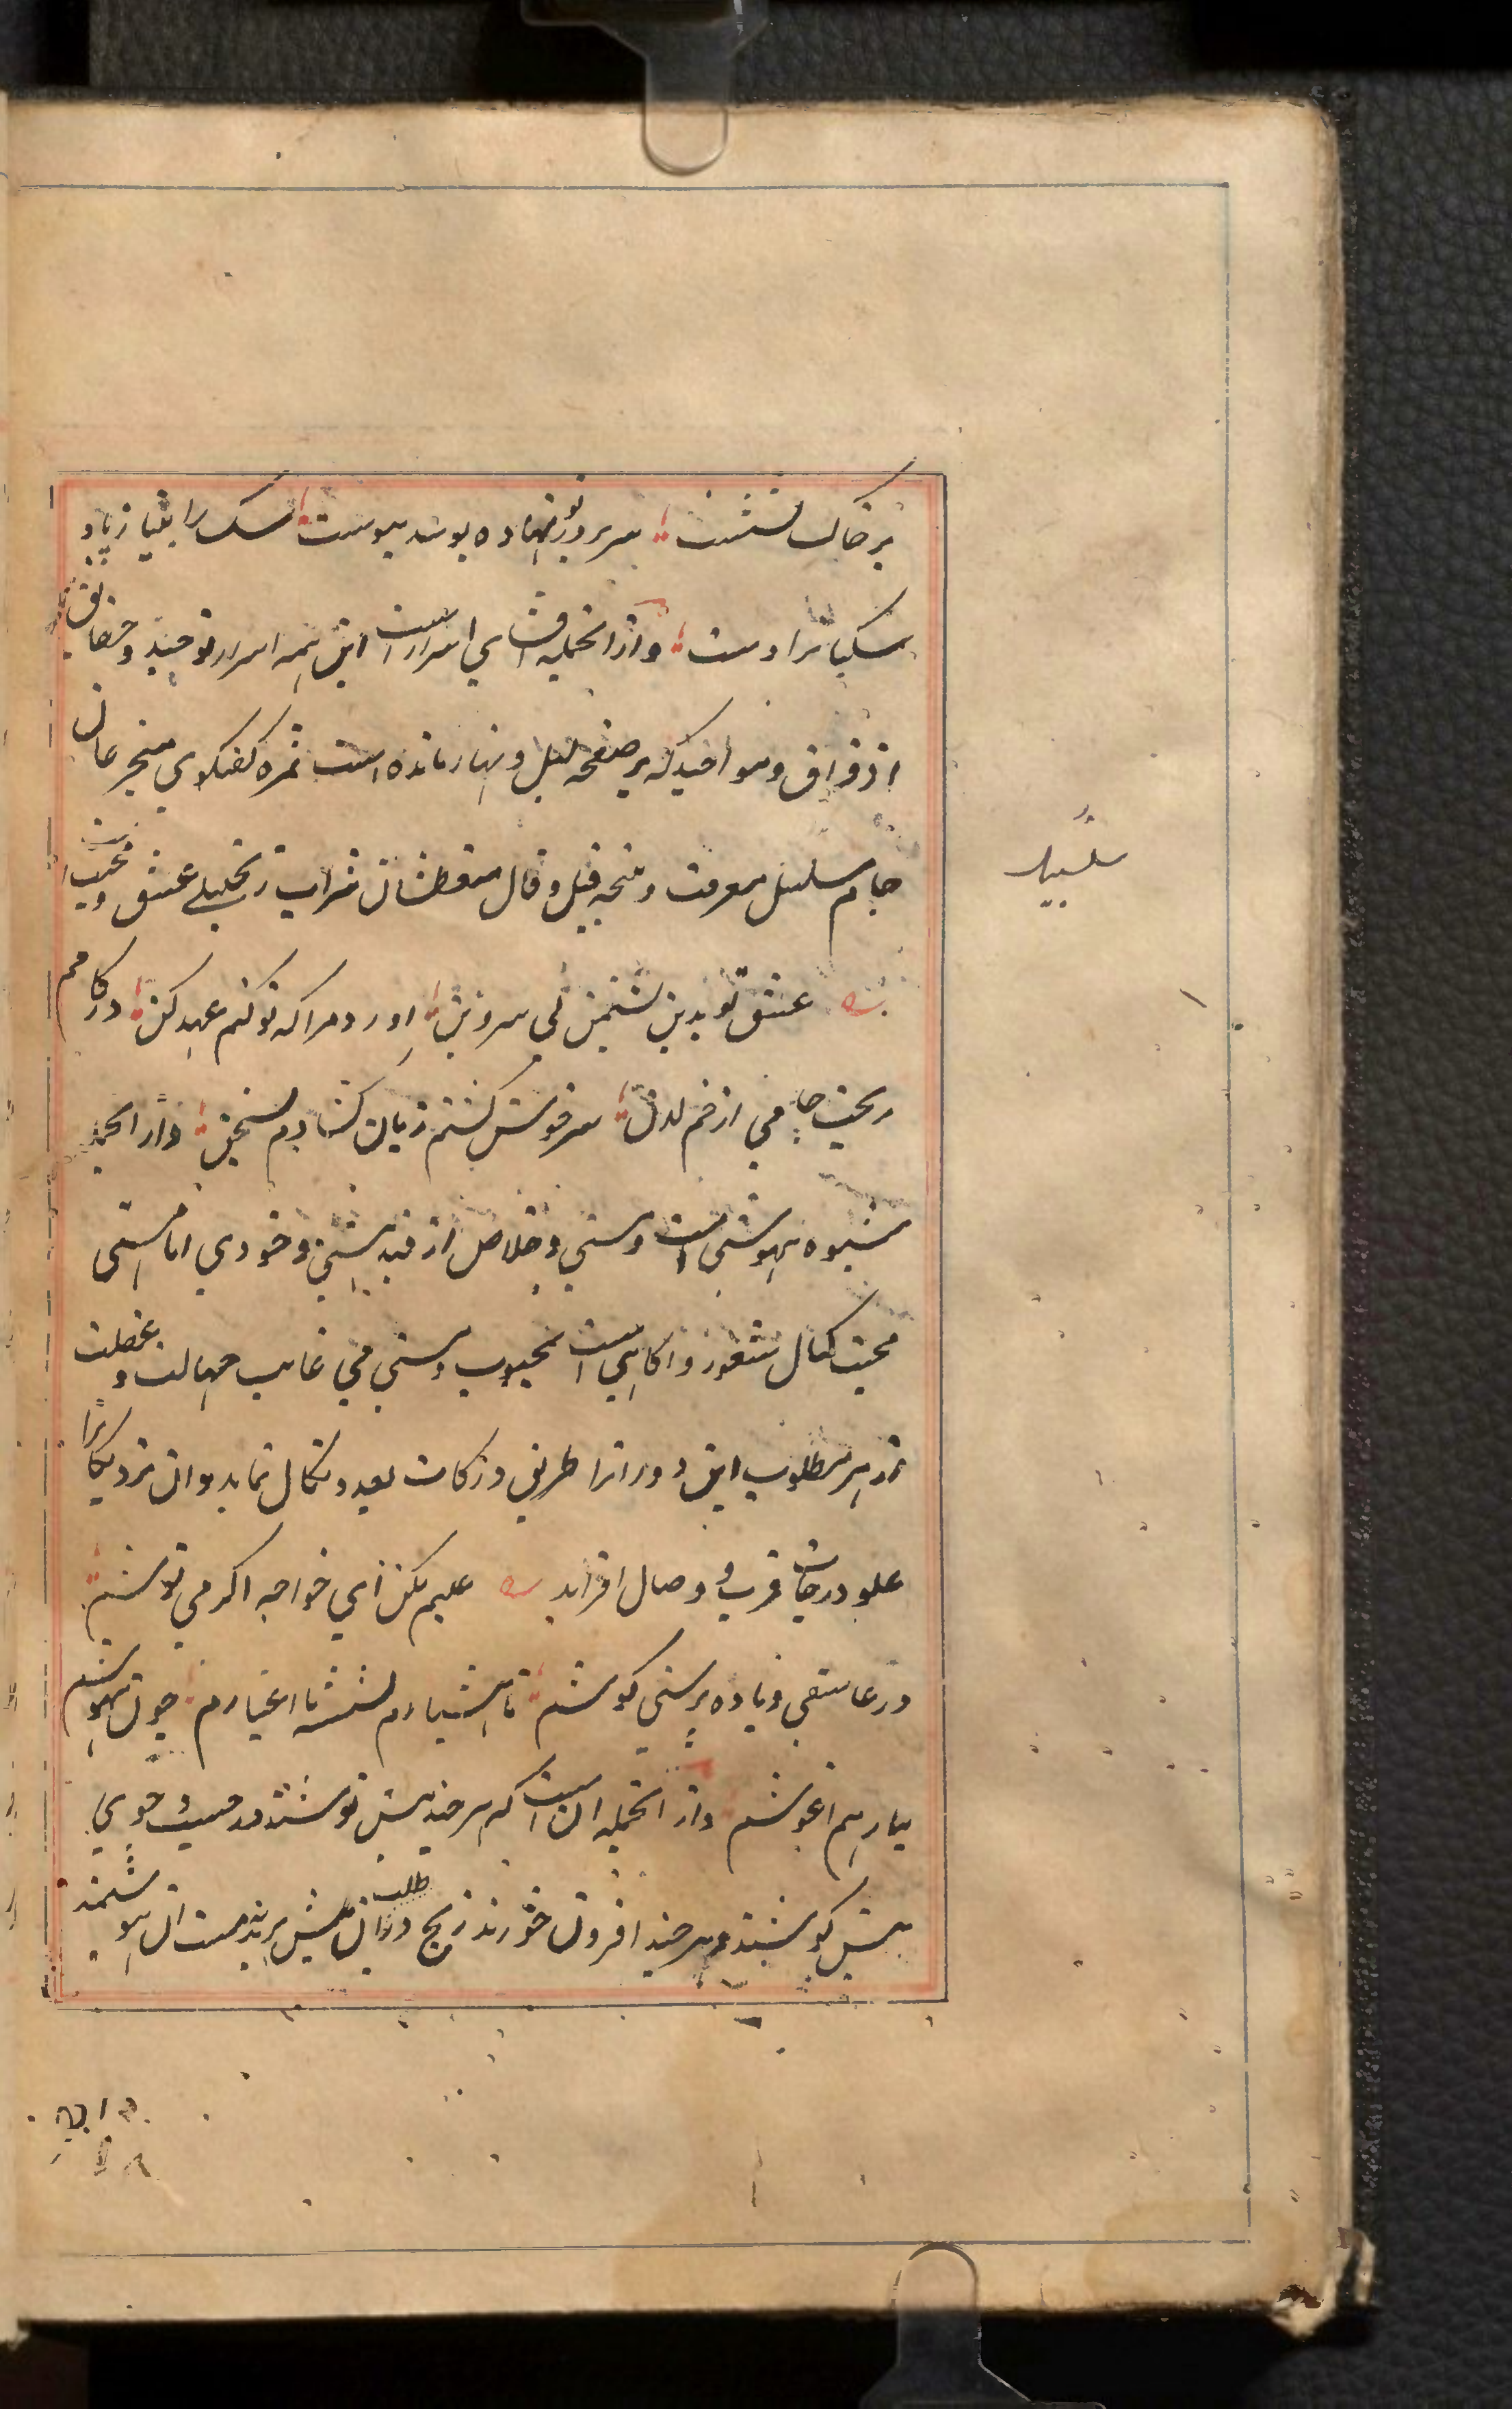 بر خاک نشست سر بر در تو نهاده بوسد پیوست سک را بقیاز یاد
سکبانرا دست و از انجمله افشای اسرار است این همه اسرار توحید و حقایق
اذواق و مواجید که بر صفحه لیل و نهار مانده است ثمره کفتکوی متجرعان
جام سلسبیل معرفت و نتیجه قیل و قال متعطشان شراب زنجبیل عشق و محبت
عشق تو بدین نشیمن بی سر و بن اورد مرا که نو کنم عهد کهن در کامم
ریخت جامی از خم لدن سرخوش کشتم زبان کشادم بسخن و از انجمله
شیوه بیهوشی است و مستی و خلاص از قید هستی و خودی اما مستی
محبت کمال شعور و اکاهی است بمحبوب و مستی می غایب جهالت و غفلت
از هر مطلوب این دورانرا طریق درکات بعد و نکال نماید و ان نزدیکانرا
علو درجات قرب و وصال افزاید عیبم مکن ای خواجه اکر می نوشم
در عاشقی و باده پرستی کوشم تا هشیارم نشسته با اغیارم چون بیهوشم
بیار هم اغوشم و از انجمله ان است که هر چند بیش نوشند در جست و جوی
بیش کوشند و هر چند افزون خورند رنج در طلب ان بیش برند نه مست ان هوشمند
سلسبیل